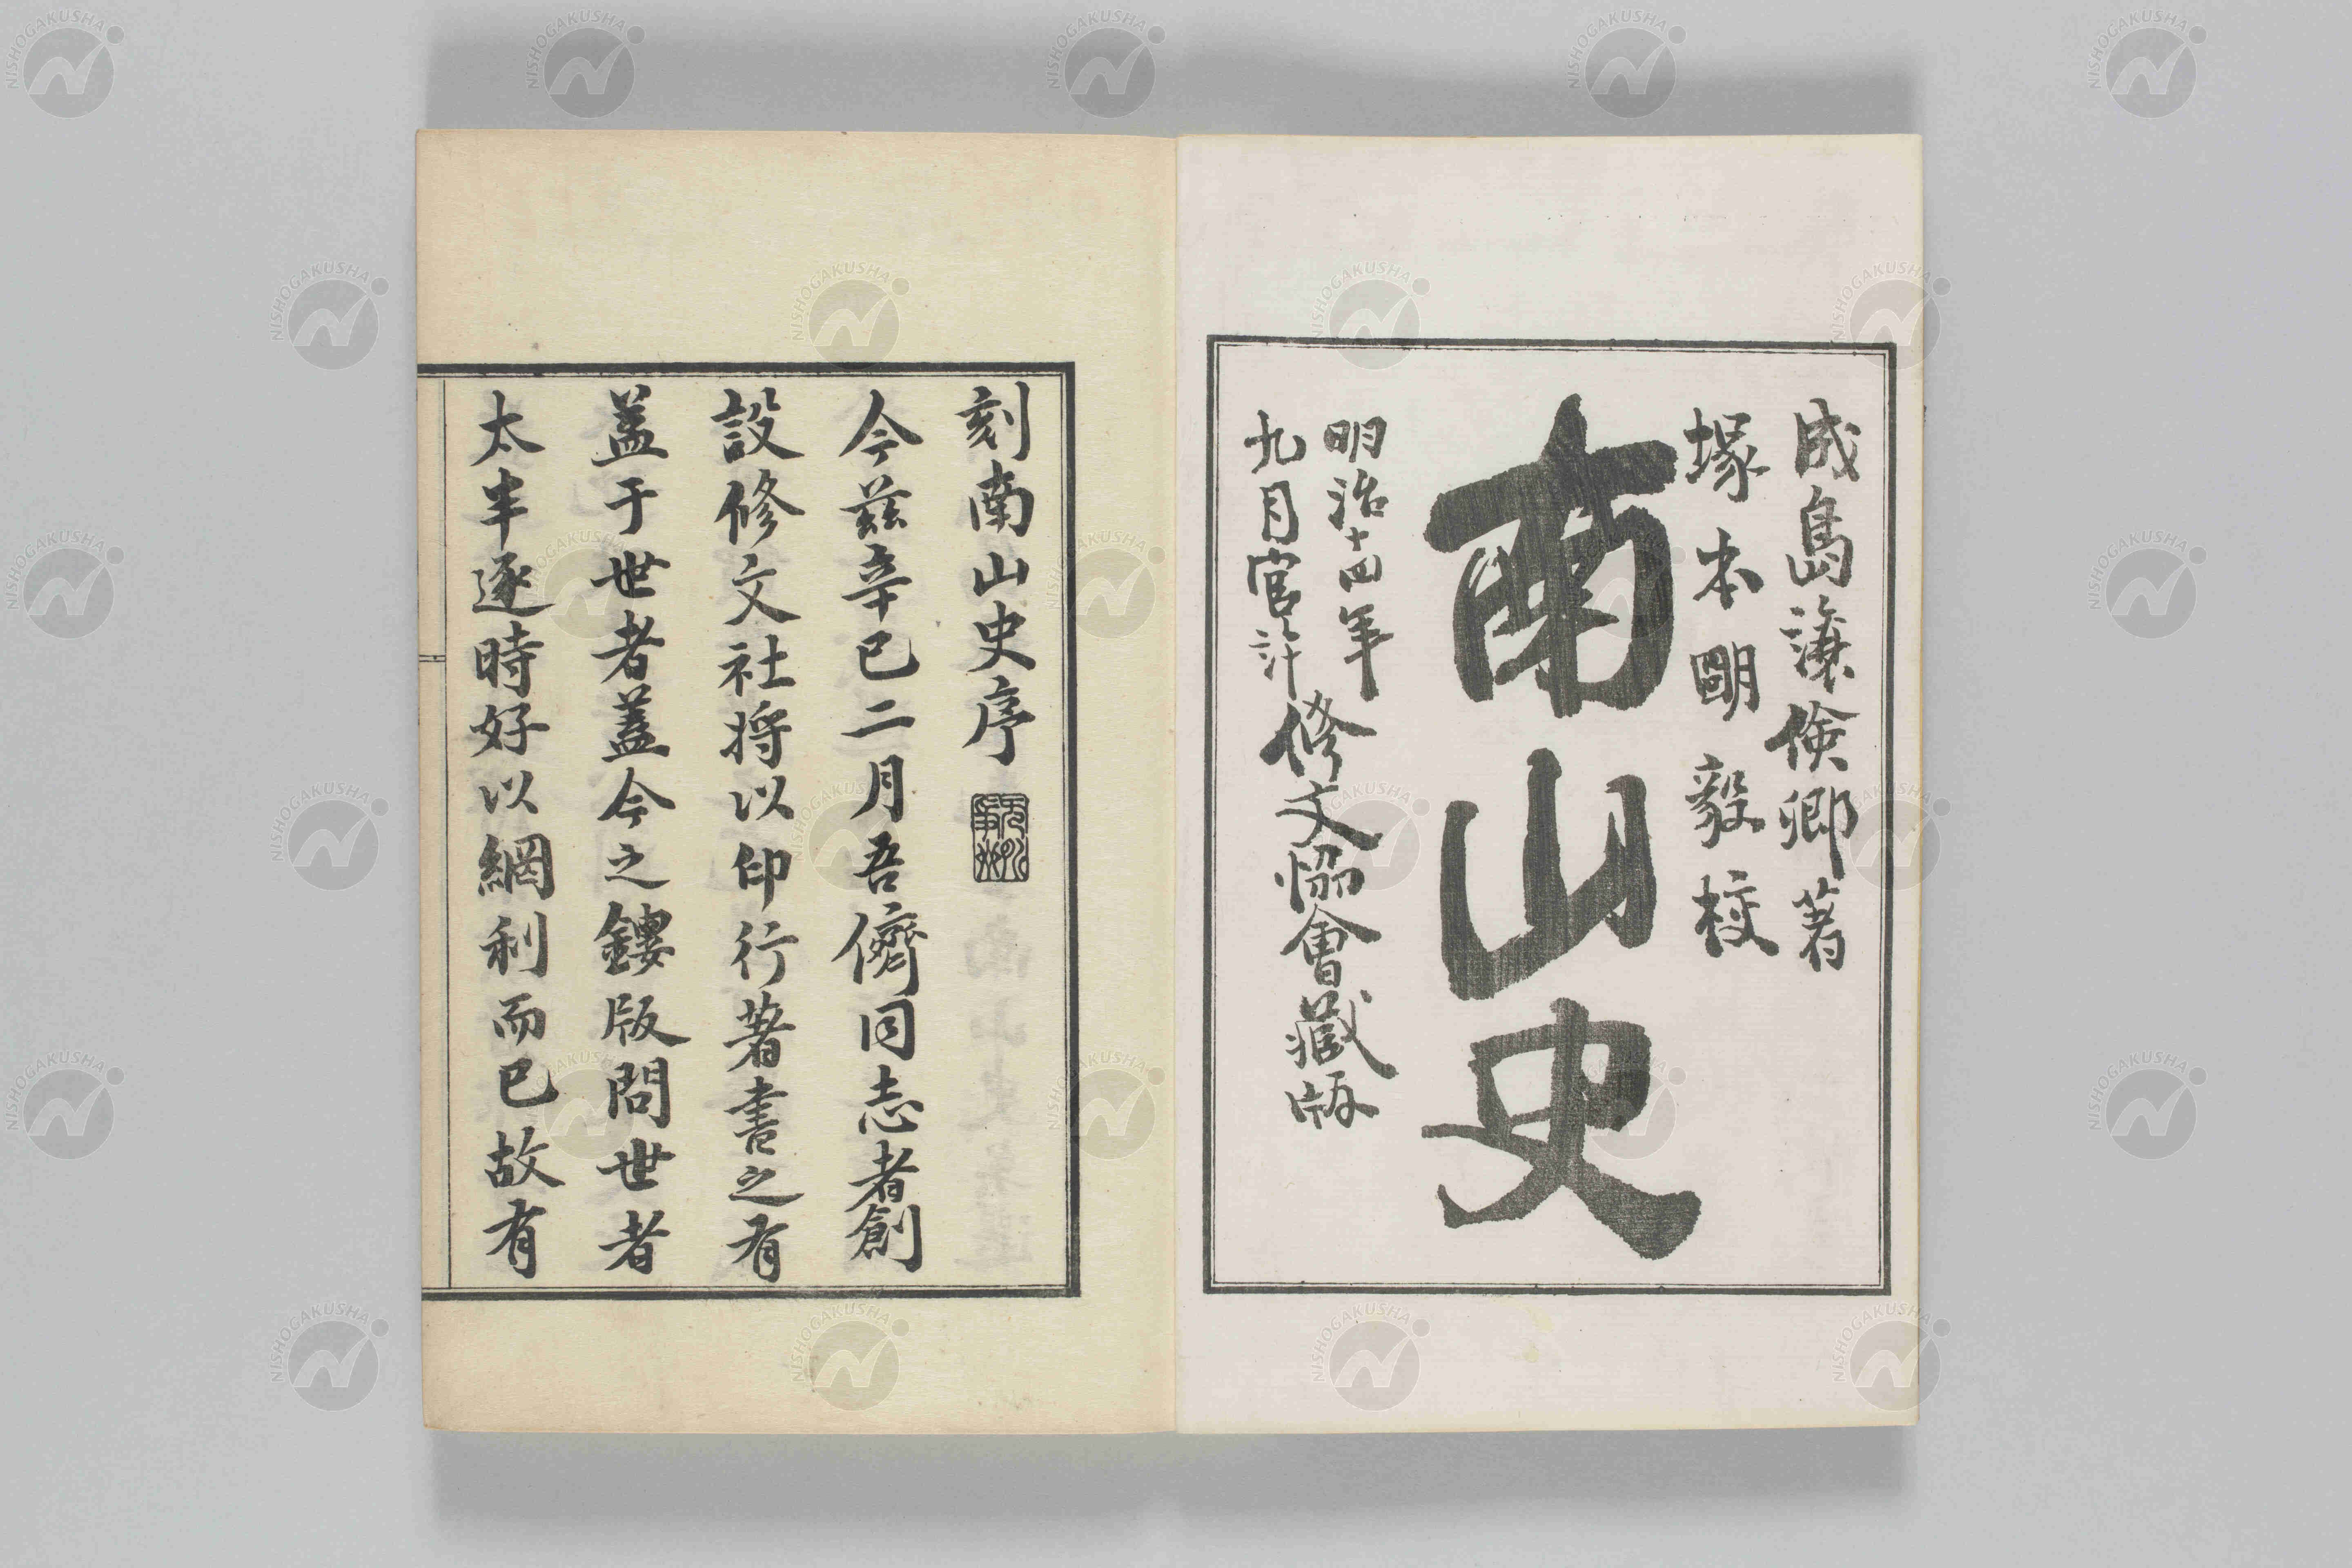 成島譲儉卿著
塚本明毅校
南山史
明治十四年
九月官許
修文協會藏版
刻南山史序
今茲辛巳二月吾儕同志者創
設修文社将以印行著書之有
益于世者蓋今之鏤版問世者
太半逐時好以網利而已故有
NISHOGAKUSHA